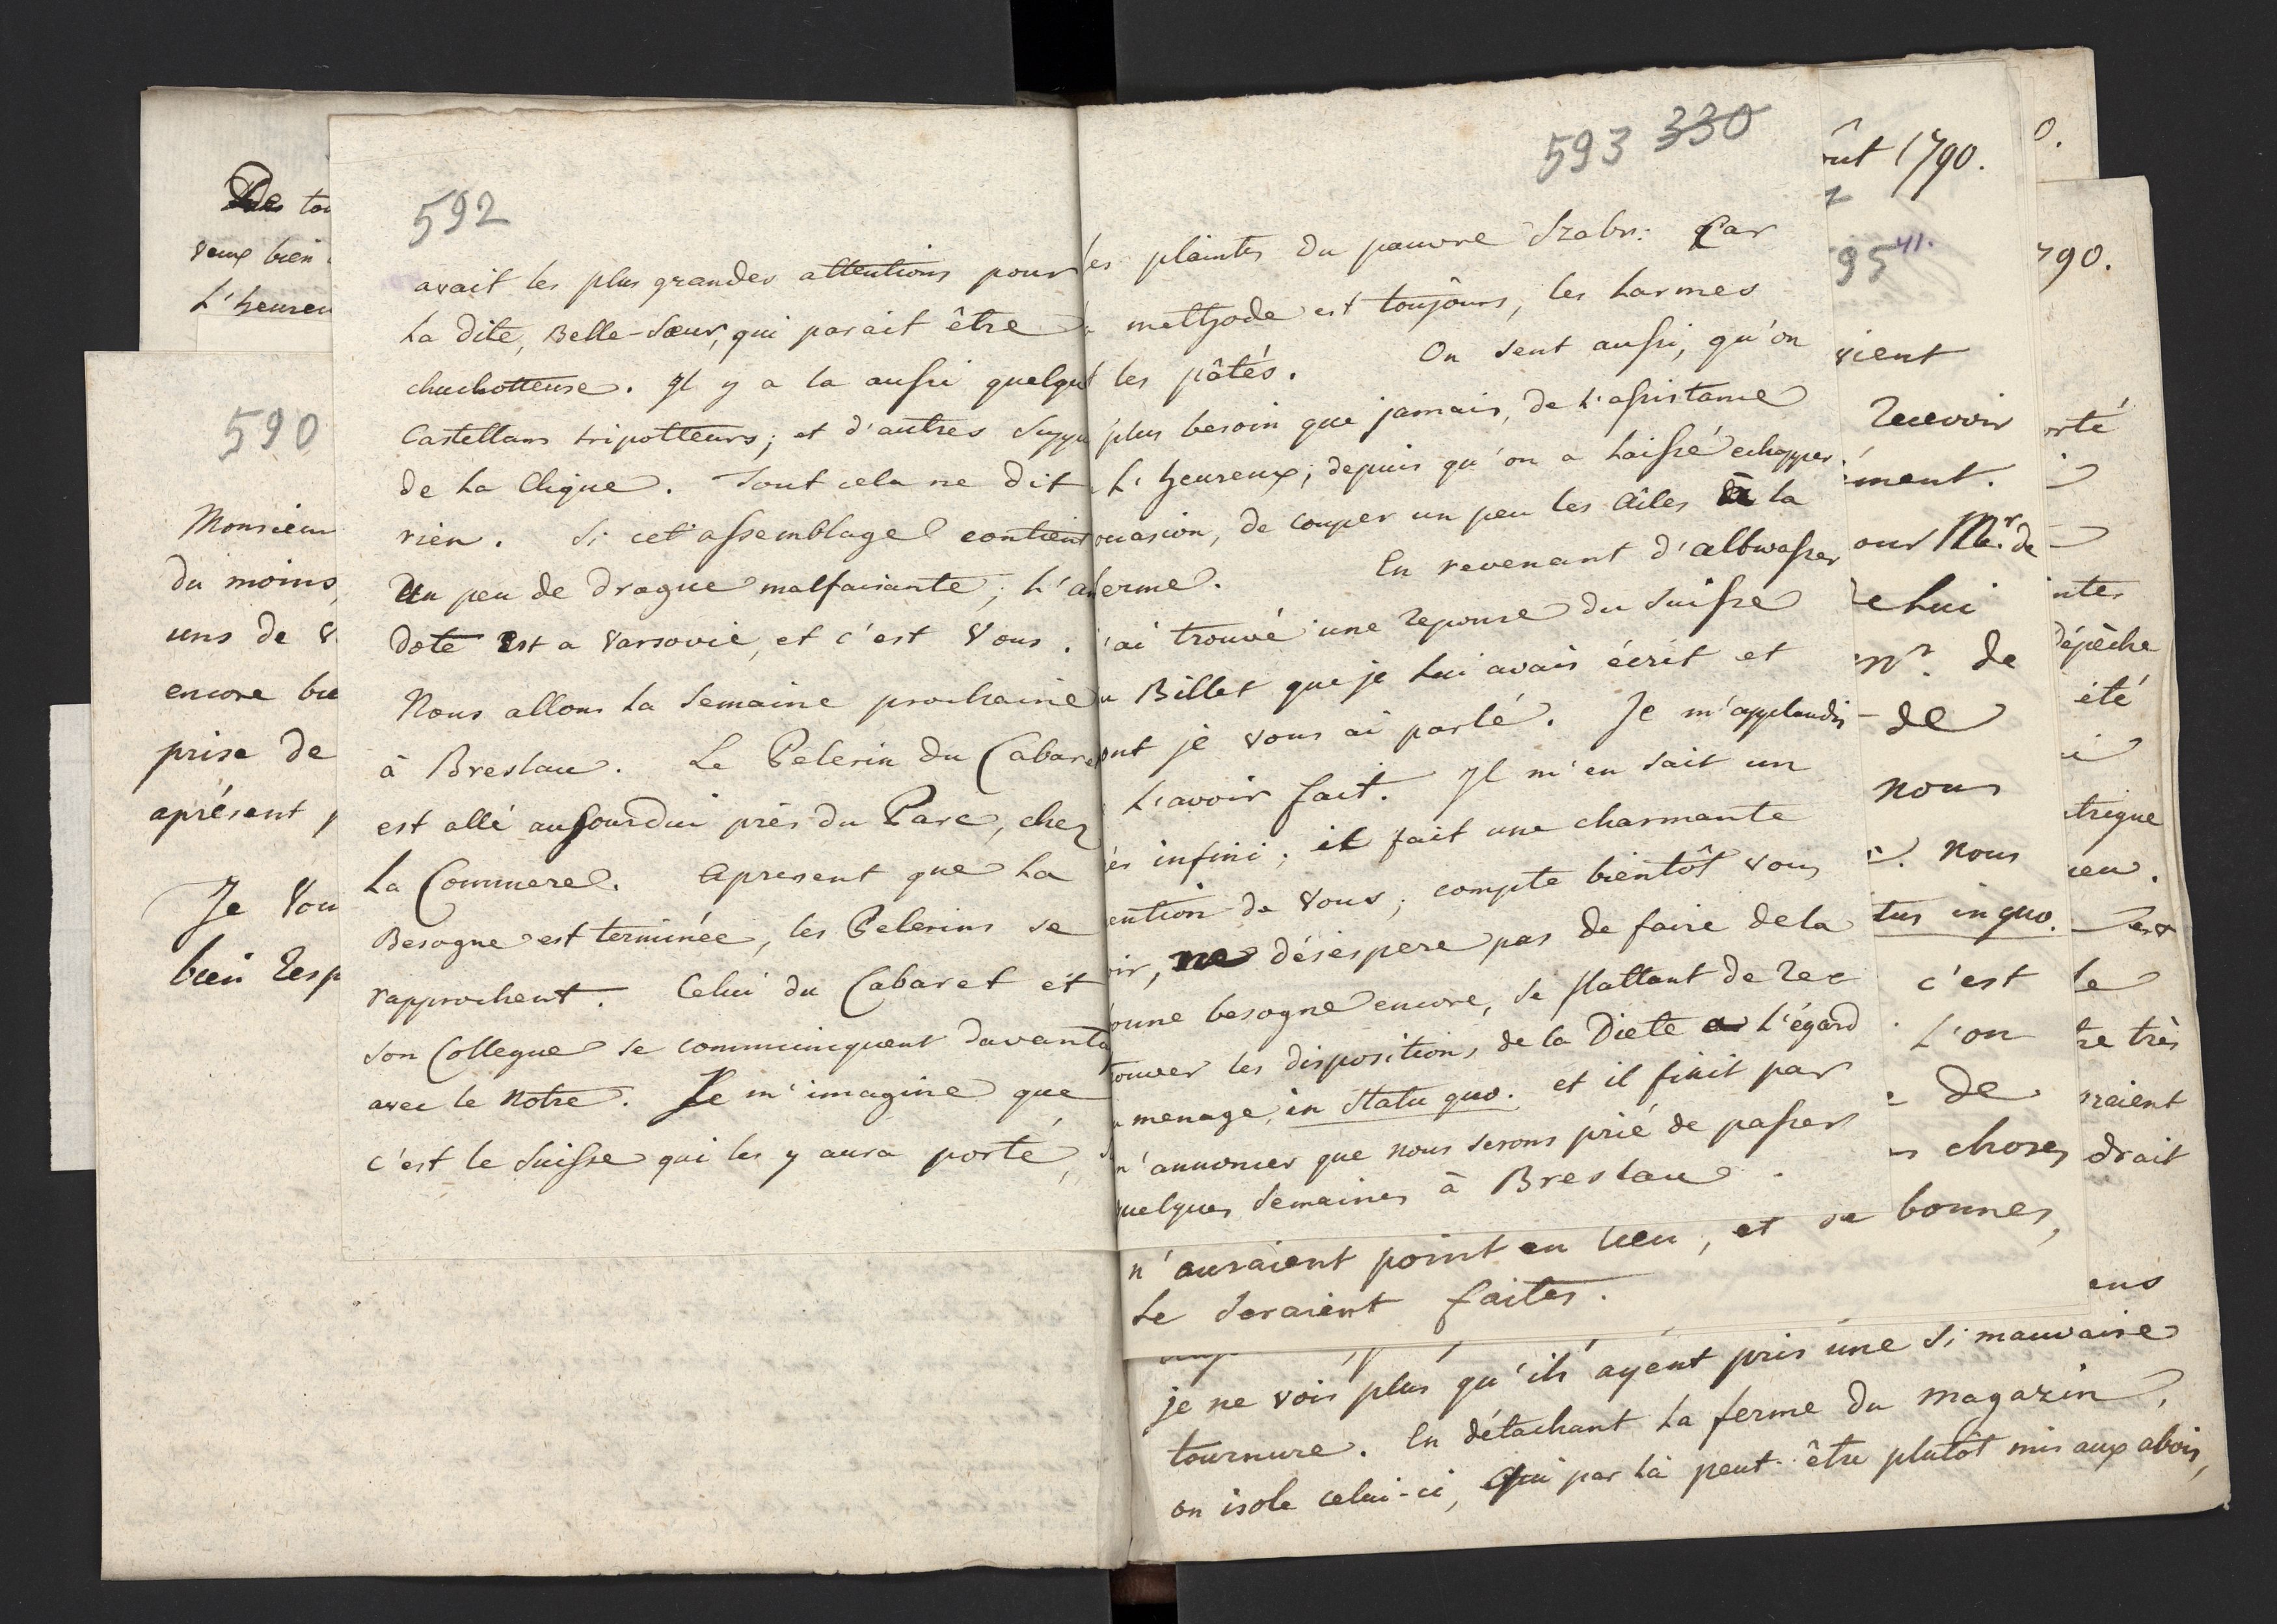 592
avait les plus grandes attentions pour
la dite, Belle-Sœur, qui parait être
chuchotteuse. Il y a la aussi quelqu
Castellans tripotteurs; et d'autres Supp
de la Clique. Tout cela ne dit
rien. Si cet assemblage contient
un peu de drogue malfaisante; l'a
dote est a Varsovie, et c'est Vous.
Nous allons la Semaine prochaine
à Breslau. Le Pelerin du Cabare
est allé aujourdui près du Parc, chez
la Commere. Apresent que la
Besogne est terminée, les Pelerins se
rapprochent. Celui du Cabaret et
son Collegue se communiquent davanta
avec le Notre. Je m'imagine que
c'est le Suisse qui les y aura porté,
593 330
es plaintes du pauvre Szabr: Car
methode est toujours, les larmes
les pâtés. On sent aussi, qu'on
plus besoin que jamais, de l'assistance
l'heureux; depuis qu'on a laissé echapper
occasion, de couper un peu les ailes à la
ferme. En revenant d'Altwasser
'ai trouvé une reponse du Suisse
u Billet que je lui avais écrit et
ont je vous ai parlé. Je m'applaudis
l'avoir fait. Il m'en sait un
ès infini; il fait une charmante
ention de vous; compte bientôt vous
oir, ne désespere pas de faire de la
onne besogne encore, se flattant de re
ouver les dispositions de la Diete a l'égard
menage, in Statu quo. et il finit par
m'annoncer que nous serons prié de passer
quelques Semaines à Breslau.
n'auraient point eu lieu, et de bonnes,
se seraient faites.
je ne vois plus qu'ils ayent pris une si mauvaise
tournure. En détachant la ferme du magazin,
on isole celui-ci, qui par là peut-être plutôt mis aux abois,
590
Monsieur
du moins,
uns de v
encore bie
prise de
apresent p
Je Vou
bien resp
tou
veux bien
l'heureu
oût 1790.
95 41.
vient
recevoir
ément.
our Mr. de
de lui
de
de
nous
nous
tus in quo.
c'est
l'on
de
choses
0.
790.
orté
ntes
dépêche
été
trigue
ieu.
le
tre très
raient
drait
ens